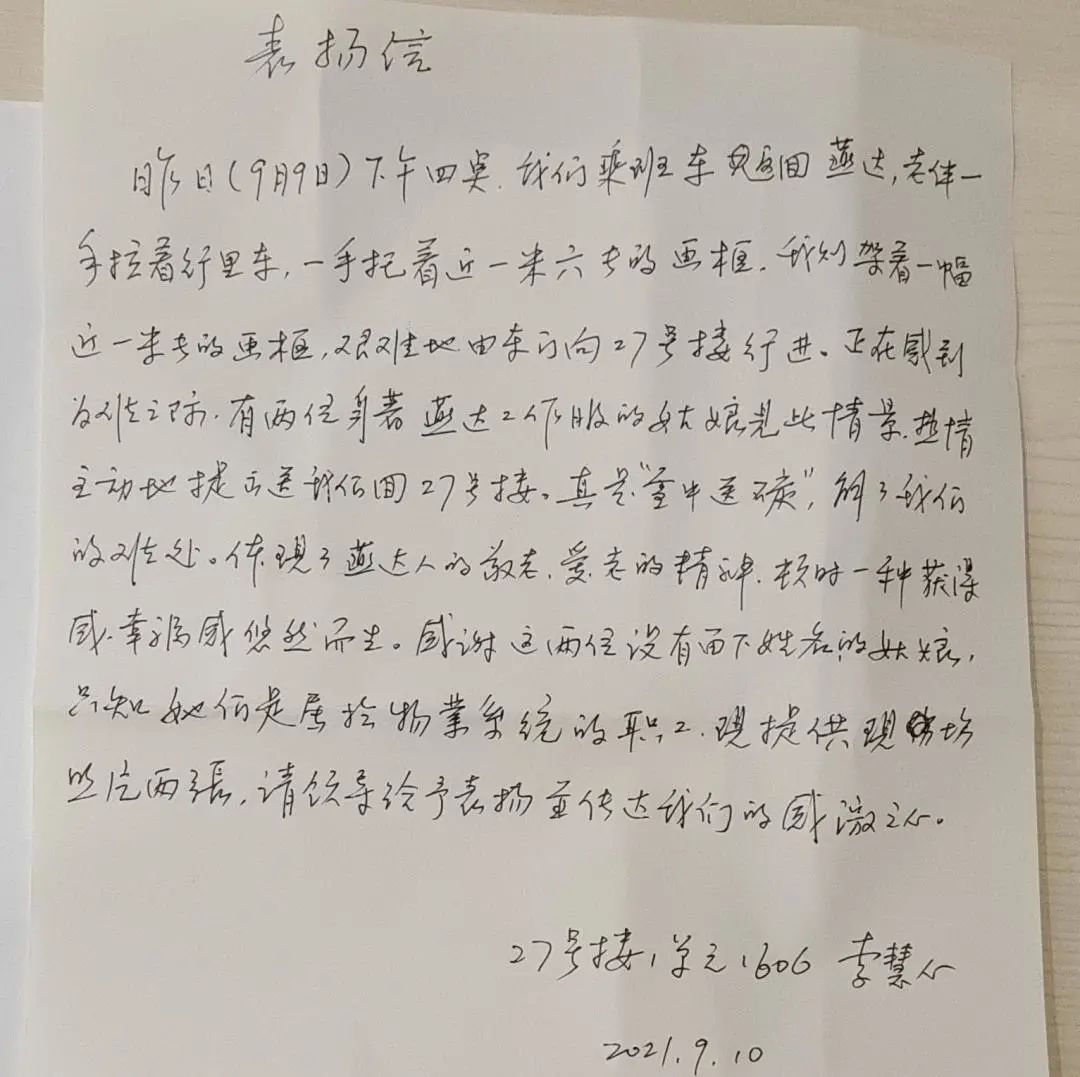 表扬信
昨日(9月9日)下午四点.我们乘班车返回燕达,老伴一
手拉着行里车,一手托着近一米六长的画框.我则架着一幅
近一米长的画框,艰难地由东门向27号楼行进。正在感到
为难之际.有两位身著燕达工作服的姑娘见此情景.热情
主动地提出送我们回27号楼。真是"雪中送碳",解了我们
的难处。体现了燕达人的敬老.爱老的精神.顿时一种获得
感.幸福感悠然而生。感谢这两位没有留下姓名的姑娘,
只知她们是属於物業系统的职工.现提供现场
照片两張,请领导给予表扬並传达我们的感激之心。
27号楼1单元1606 李慧心
2021.9.10